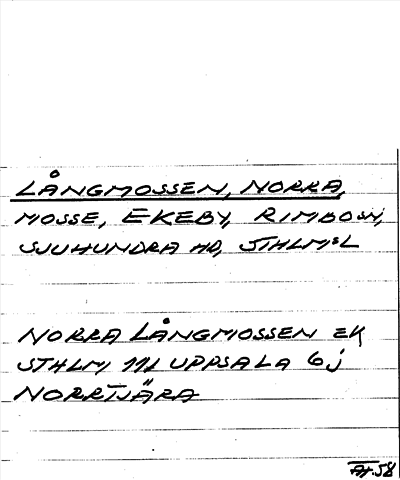 LÅNGMOSSEN, NORRA,
MOSSE, EKEBY, RIMBO SN,
SJUHUNDRA HD, STHLMS L
NORRA LÅNGMOSSEN EK
STHLM 111 UPPSALA 6j
NORRTJÄRA
AH.58